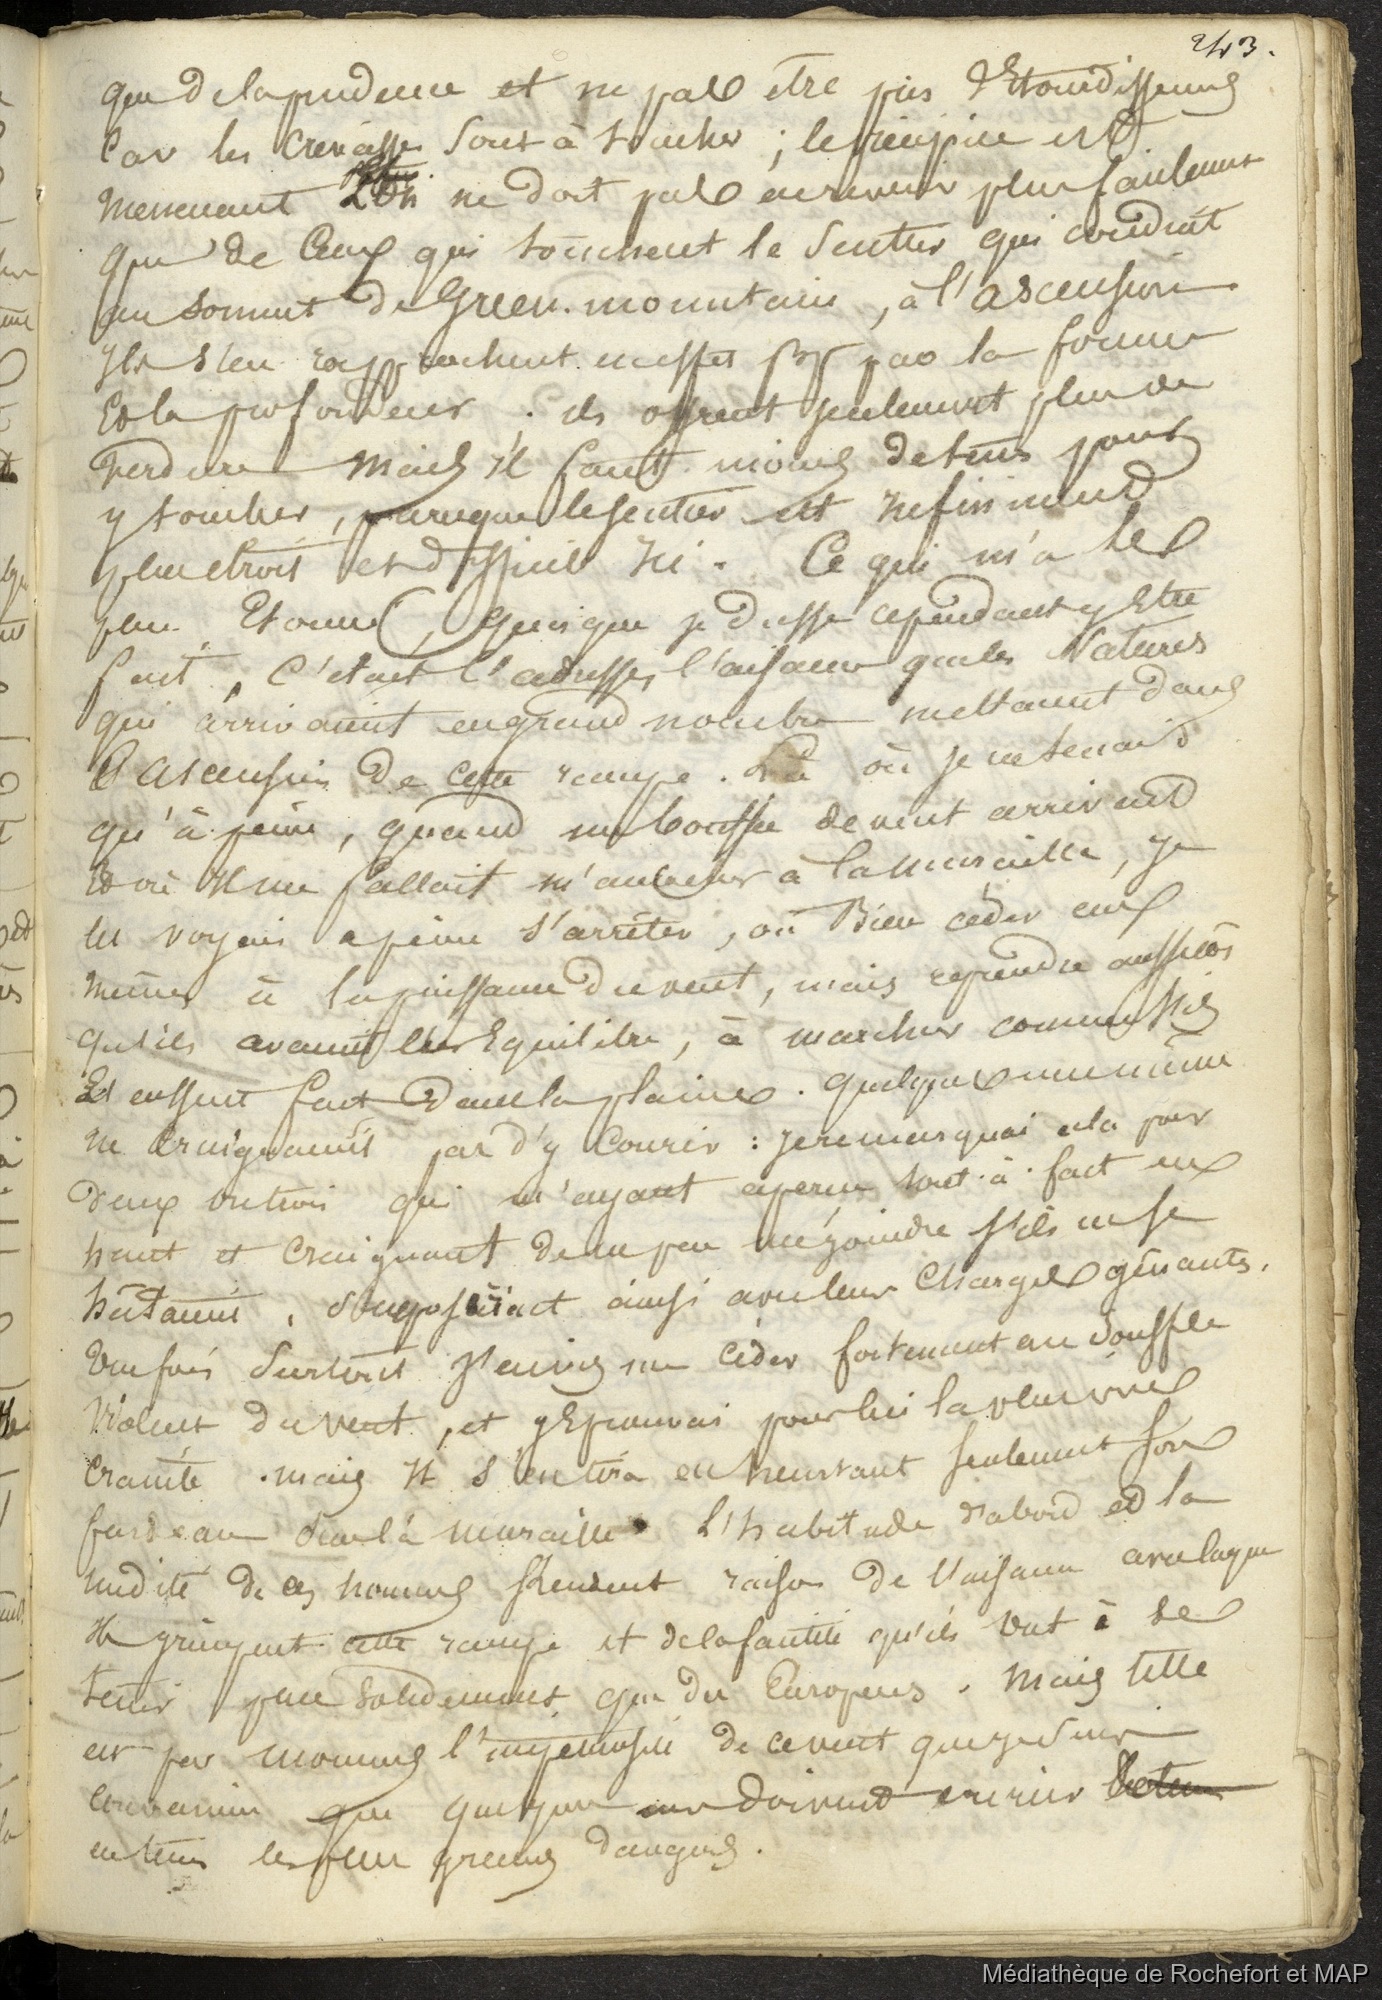 243.
que de la prudence et ne pas être pris d'Etourdissemens
Car les crevasses sont à toucher ; le précipice est
menaçant L'on ne doit pas en revenir plus facilement
que de Ceux qui touchent le Sentier qui conduit
au sommet de Green. mountain, à l'ascension
Ils s'en rapprochent en effet par la forme
Et la profondeur . ils offrent seulement plus de
verdure mais il faut moins de tems pour
y tomber, parceque le sentier est Infiniment
plus étroit et difficile Ici. Ce qui m'a le
plus Etonné, quoique je dusse cependant y Etre
fait, c'était l'adresse, l'aisance que les Naturels
qui arrivaient en grand nombre mettaient dans
l'Ascension de cette rampe. Là où je ne tenais
qu'à peine, quand une bouffée de vent arrivant
Et où Il me fallait m'accrocher à la muraille, je
les voyais à peine s'arrêter, où Bien céder eux
mêmes à la puissance du vent, mais reprendre aussitôt
qu'ils avaient leur Equilibre, à marcher comme s'ils
Et eussent fait dans la plaine. quelques uns même
ne craignaient pas d'y Courir : je remarquai cela par
deux ou trois qui m'ayant aperçu tout-à-fait en
haut et craignant de ne pas me joindre s'ils ne se
hâtaient, s'exposaient ainsi avec leurs Charges gênantes.
Une fois surtout J'en vis un céder fortement au Souffle
Violent du vent, et j'Eprouvai pour lui la plus vive
crainte . mais Il s'en tira en heurtant seulement son
fardeau sur la muraille. L'habitude d'abord et la
nudité de ces hommes Rendent raison de l'aisance avec laquelle
Ils grimpent cette rampe et de la facilité qu'ils ont à se
tenir plus solidement que des Européens . Mais telle
est par momens l'impétuosité de ce vent que je suis
convaincu que quelques uns doivent courir
en tems les plus grands dangers.
Médiathèque de Rochefort et MAP